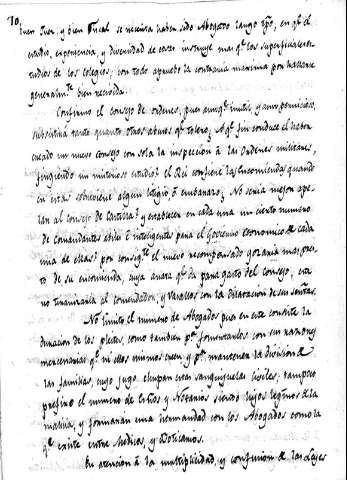 70.
buen Juez, y buen Fiscal se necesita haber sido Abogado largo tpo, en qe. el
estudio, experiencia, y diversidad de casos instruye mas qe. los superficiales es-
tudios de los colegios; con todo apruebo la contraria maxima por hallarse
generalmte. bien recivida.
Confirmo el consejo de ordenes, pues aunqe. inutil, y aun pernicioso,
subsistirá tanto quanto otros abusos qe. tolero. A qe. fin conduce el haber
creado un nuevo consejo con sola la inspeccion á las Ordenes militares,
fingiendo un misterioso estudio? el Rei confiere las Encomiendas quando
en estas sobreviene algun litigio ó embarazo; No seria mejor ape-
lar al consejo de Castilla? y establecer en cada una un cierto numero
de Comandantes abiles é inteligentes para el Govierno economico de cada
una de ellas? por consigte. el nuevo recompensado gozaria mas pres-
to de su encomienda, cuya anata qe. da para gasto del consejo, este
no tiranizaria al comendador, y vasallos con la dilatacion de sus sentas.
No limito el numero de Abogados pues en este consiste la
duracion de los pleitos, como tambien pr. fomentarlos con sus razones
mercenarias qe. ni ellos mismos creen y pr. mantener la division de
las familias, cujo jugo chupan estas sanguijuelas sutiles; tampoco
prefixo el numero de Essnos y Notarios siendo hijos legmos de la
malicia, y formarán una hermandad con los Abogados como la
qe. existe entre Medicos, y Boticarios.
En atencion á la multiplicidad, y confusion de las Leyes